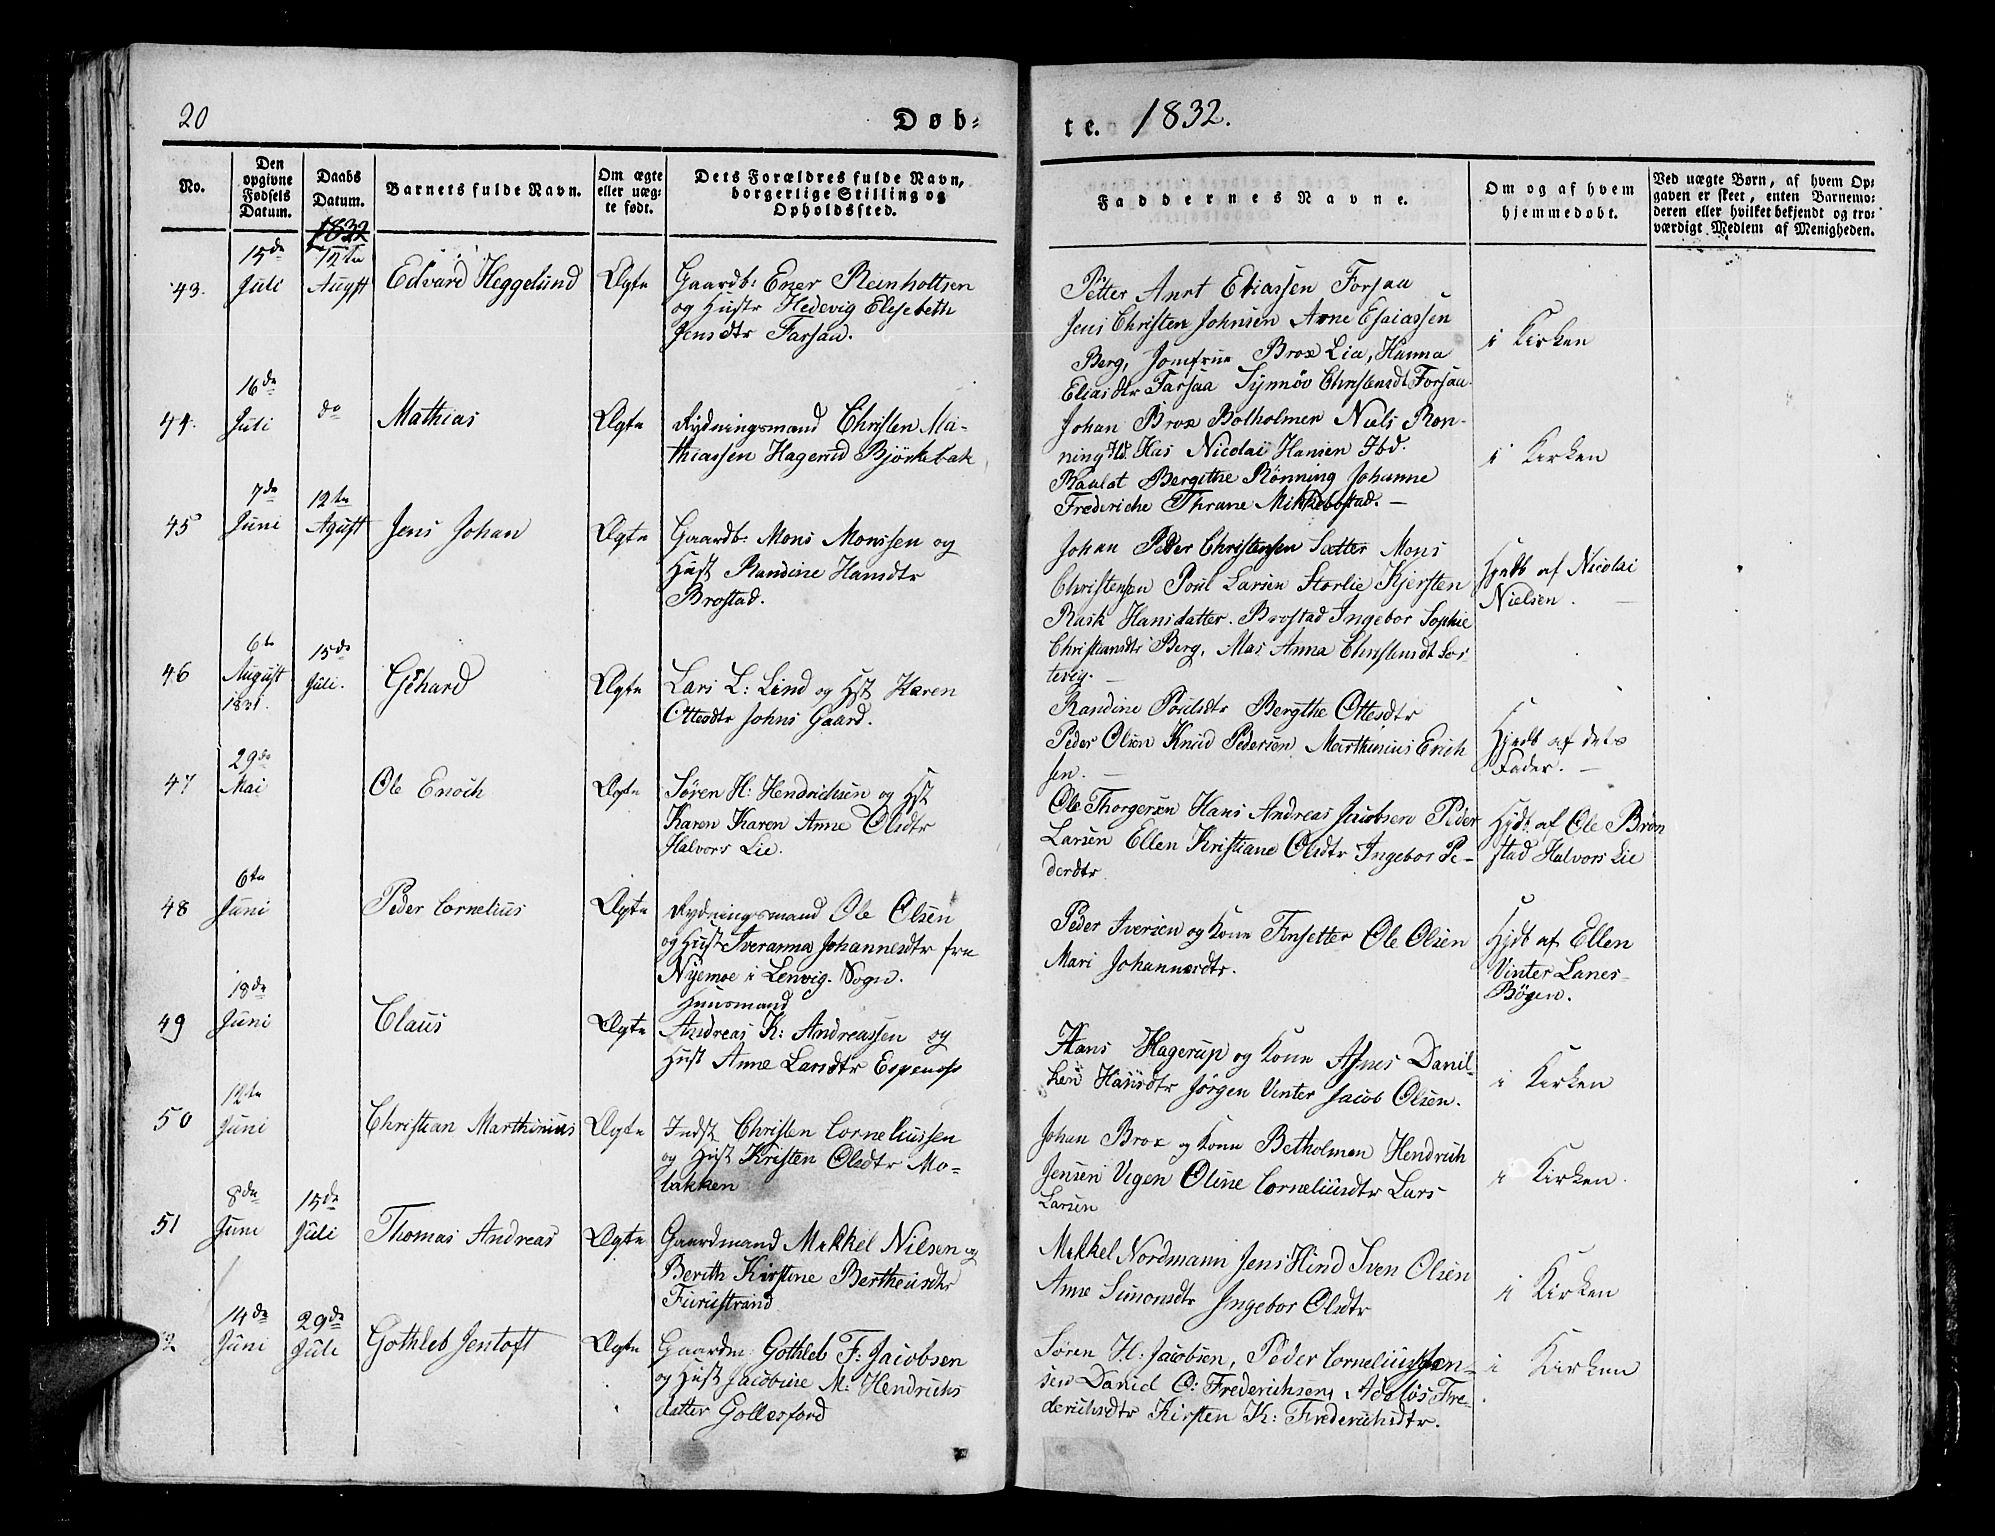 20
Døb-
te. 1832.
No.
Den opgivne Fødsels Datum.
Daabs Datum.
Barnets fulde Navn.
Om ægte eller uæg-te født.
Dets Forældres fulde Navn, borgerlige Stilling og Opholdssted.
Faddernes Navne.
Om og af hvem hjemmedøbt.
Ved uægte Børn, af hvem Op-
gaven er skeet, enten Barnemo-
deren eller hvilket bekjendt og tro-
værdigt Medlem af Menigheden.
1832
43.
15de Juli
12te Augst
Edvard Heggelund
Ægte
Gaardb: Ener Reinholtsen
og Hustr Hedevig Elisebeth
Jensdtr Farsau.
Petter Anrt Eliassen Forsaa
Jens Christen Johnsen Arne Esaiassen
Berg, Jomfrue Brox Lia, Hanna
Eliasdtr Farsaa Synnöv Christensdt Forsaa.
i Kirken
44.
16de Juli
do
Mathias
Ægte
Rydningsmand Christen Ma-
thiassen Hagerud Björkebak
Johan Brox Botholmen Niels Rön-
ning Kas Nicolai Hansen Ibd.
Raulat Bergithe Rönning Johanne
Frederiche Thrane Mikkelbostad. —
i Kirken
45
7de Juni
12te Agust
Jens Johan
Ægte
Gaardb. Mons Monssen og
Hust Randine Hansdtr
Brostad.
Johan Peder Christensen Sætter Mons
Christensen Poul Larsen Storlie Kjersten
Rask Hansdatter. Brostad Ingebor Sophie
Christiansdtr Berg, Mas Anna Christensdt Sor
tevig. —
Hjedb af Nicolai
Nielsen. —
46
6te August 1831.
15de Juli.
Gerhard
Ægte
Lars L: Lind og Hst Karen
Ottesdtr Johns Gaard.
Randine Poulsdtr Bergthe Ottesdtr
Peder Olsen Knud Pedersen Marthinius Erich
sen. —
Hjedb af dets
Fader. —
47
29de Mai
Ole Enoch
Ægte
Søren H: Hendrichsen og Hst
Karen Karen Anne Olsdtr
Halvors Lie.
Ole Thorgersen Hans Andreas Jacobsen Peder
Larsen Ellen Kristiane Olsdtr Ingebor Pe-
dersdtr
Hjdt. af Ole Brön
stad Halvors Lie
48
6te Juni
Peder Cornelius
Ægte
Rydningsmand Ole Olsen
og Hust Iveranna Johannesdtr fra
Nyemoe i Lenvig. Sogn.
Peder Iversen og Kone Finsetter Ole Olsen
Mari Johannesdtr.
Hjdt af Ellen
Vinter Lanes-
Bögen.
49
18de Juni
Claus
Ægte
Huusmand
Andreas K: Andreassen og
Hust Anne Larsdtr Espenose
Hans Hagerup og Kone Asnes Danil-
ken Hansdtr Jörgen Vinter Jacob Olsen.
i Kirken
50
12te Juni
Christian Marthinius
Ægte
Indst Christen Corneliussen
og Hust Kristen Olsdtr Mo-
bakken
Johan Brox og Kone Betholmen Hendrich
Jensen Vegen Oline Corneliusdtr Lars
Larsen
i Kirken.
51
8de Juni
15de Juli
Thomas Andreas
Ægte
Gaardmand Mekkel Nilsen og
Berith Kirstine Bertheusdtr
Furustrand
Mekkel Nordmann Jens Hind Sven Olsen
Anne Simonsdtr Ingebor Olsdtr
i Kirken
2
14de Juni
29de Juli
Gothleb Jentoft
Ægte
Gaardm: Gothleb F: Jacobsen
og Hust Jacobine M: Hendrichs
datter Gollesford
Søren H: Jacobsen, Peder Corneliussen Jen-
sen Danid O: Frederichsen, Adelös Fre-
derichsdtr Kirsten K: Frederichsdtr.
i Kirken